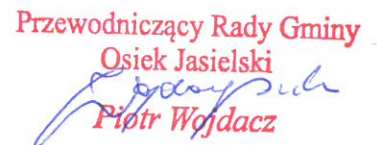 Przewodniczący Rady Gminy
Osiek Jasielski
Piotr Wojdacz